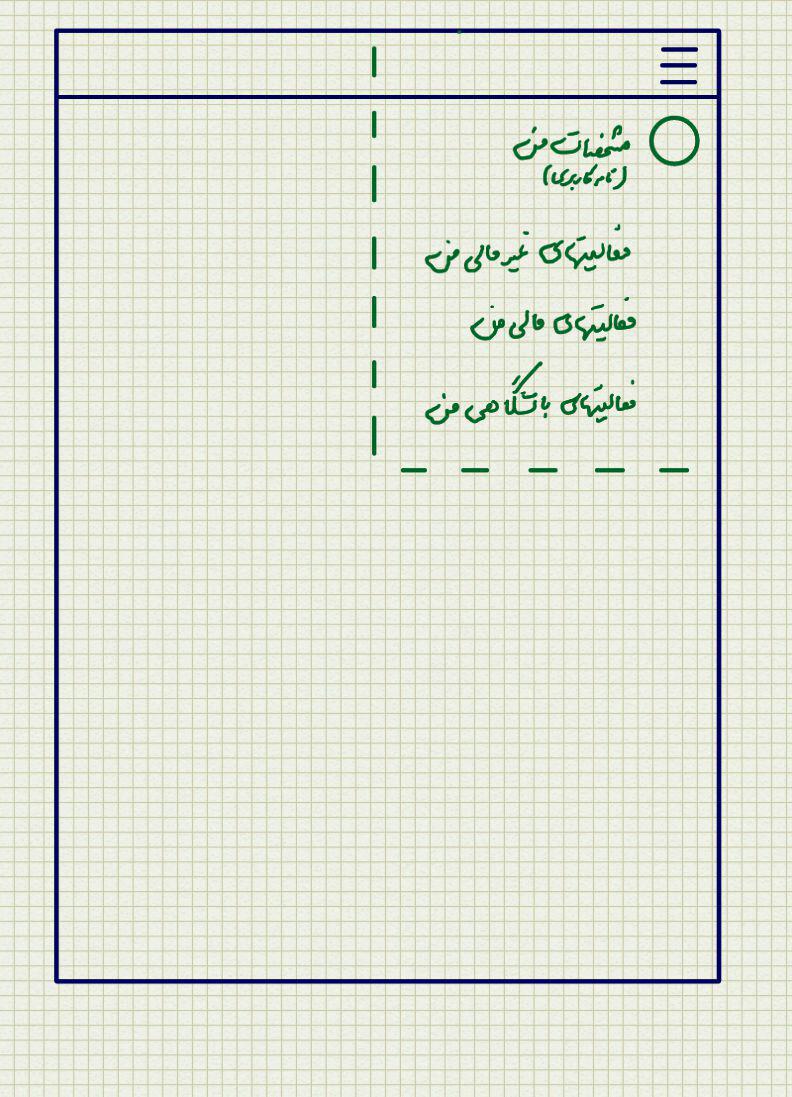 مشخصات من
(نام کاربری)
فعالیتهای غیر مالی من
فعالیتهای مالی من
فعالیتهای باشگاهی من